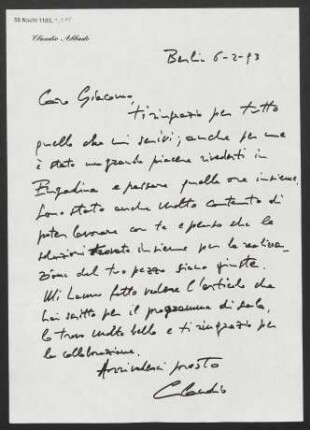 Claudio Abbado
Berlin 6-2-93
Caro Giacomo,
ti ringrazio per tutto
quello che mi scrivi; anche per me
è stato un grande piacere rivederti in
Engadina e passare quelle ore insieme.
Sono stato anche molto contento di
poter lavorare con te e penso che le
soluzioni trovate insieme per la realizza-
zione del tuo pezzo siano giuste.
Mi hanno fatto vedere l'articolo che
hai scritto per il programma di sala,
lo trovo molto bello e ti ringrazio per
la collaborazione.
Arrivederci presto
Claudio